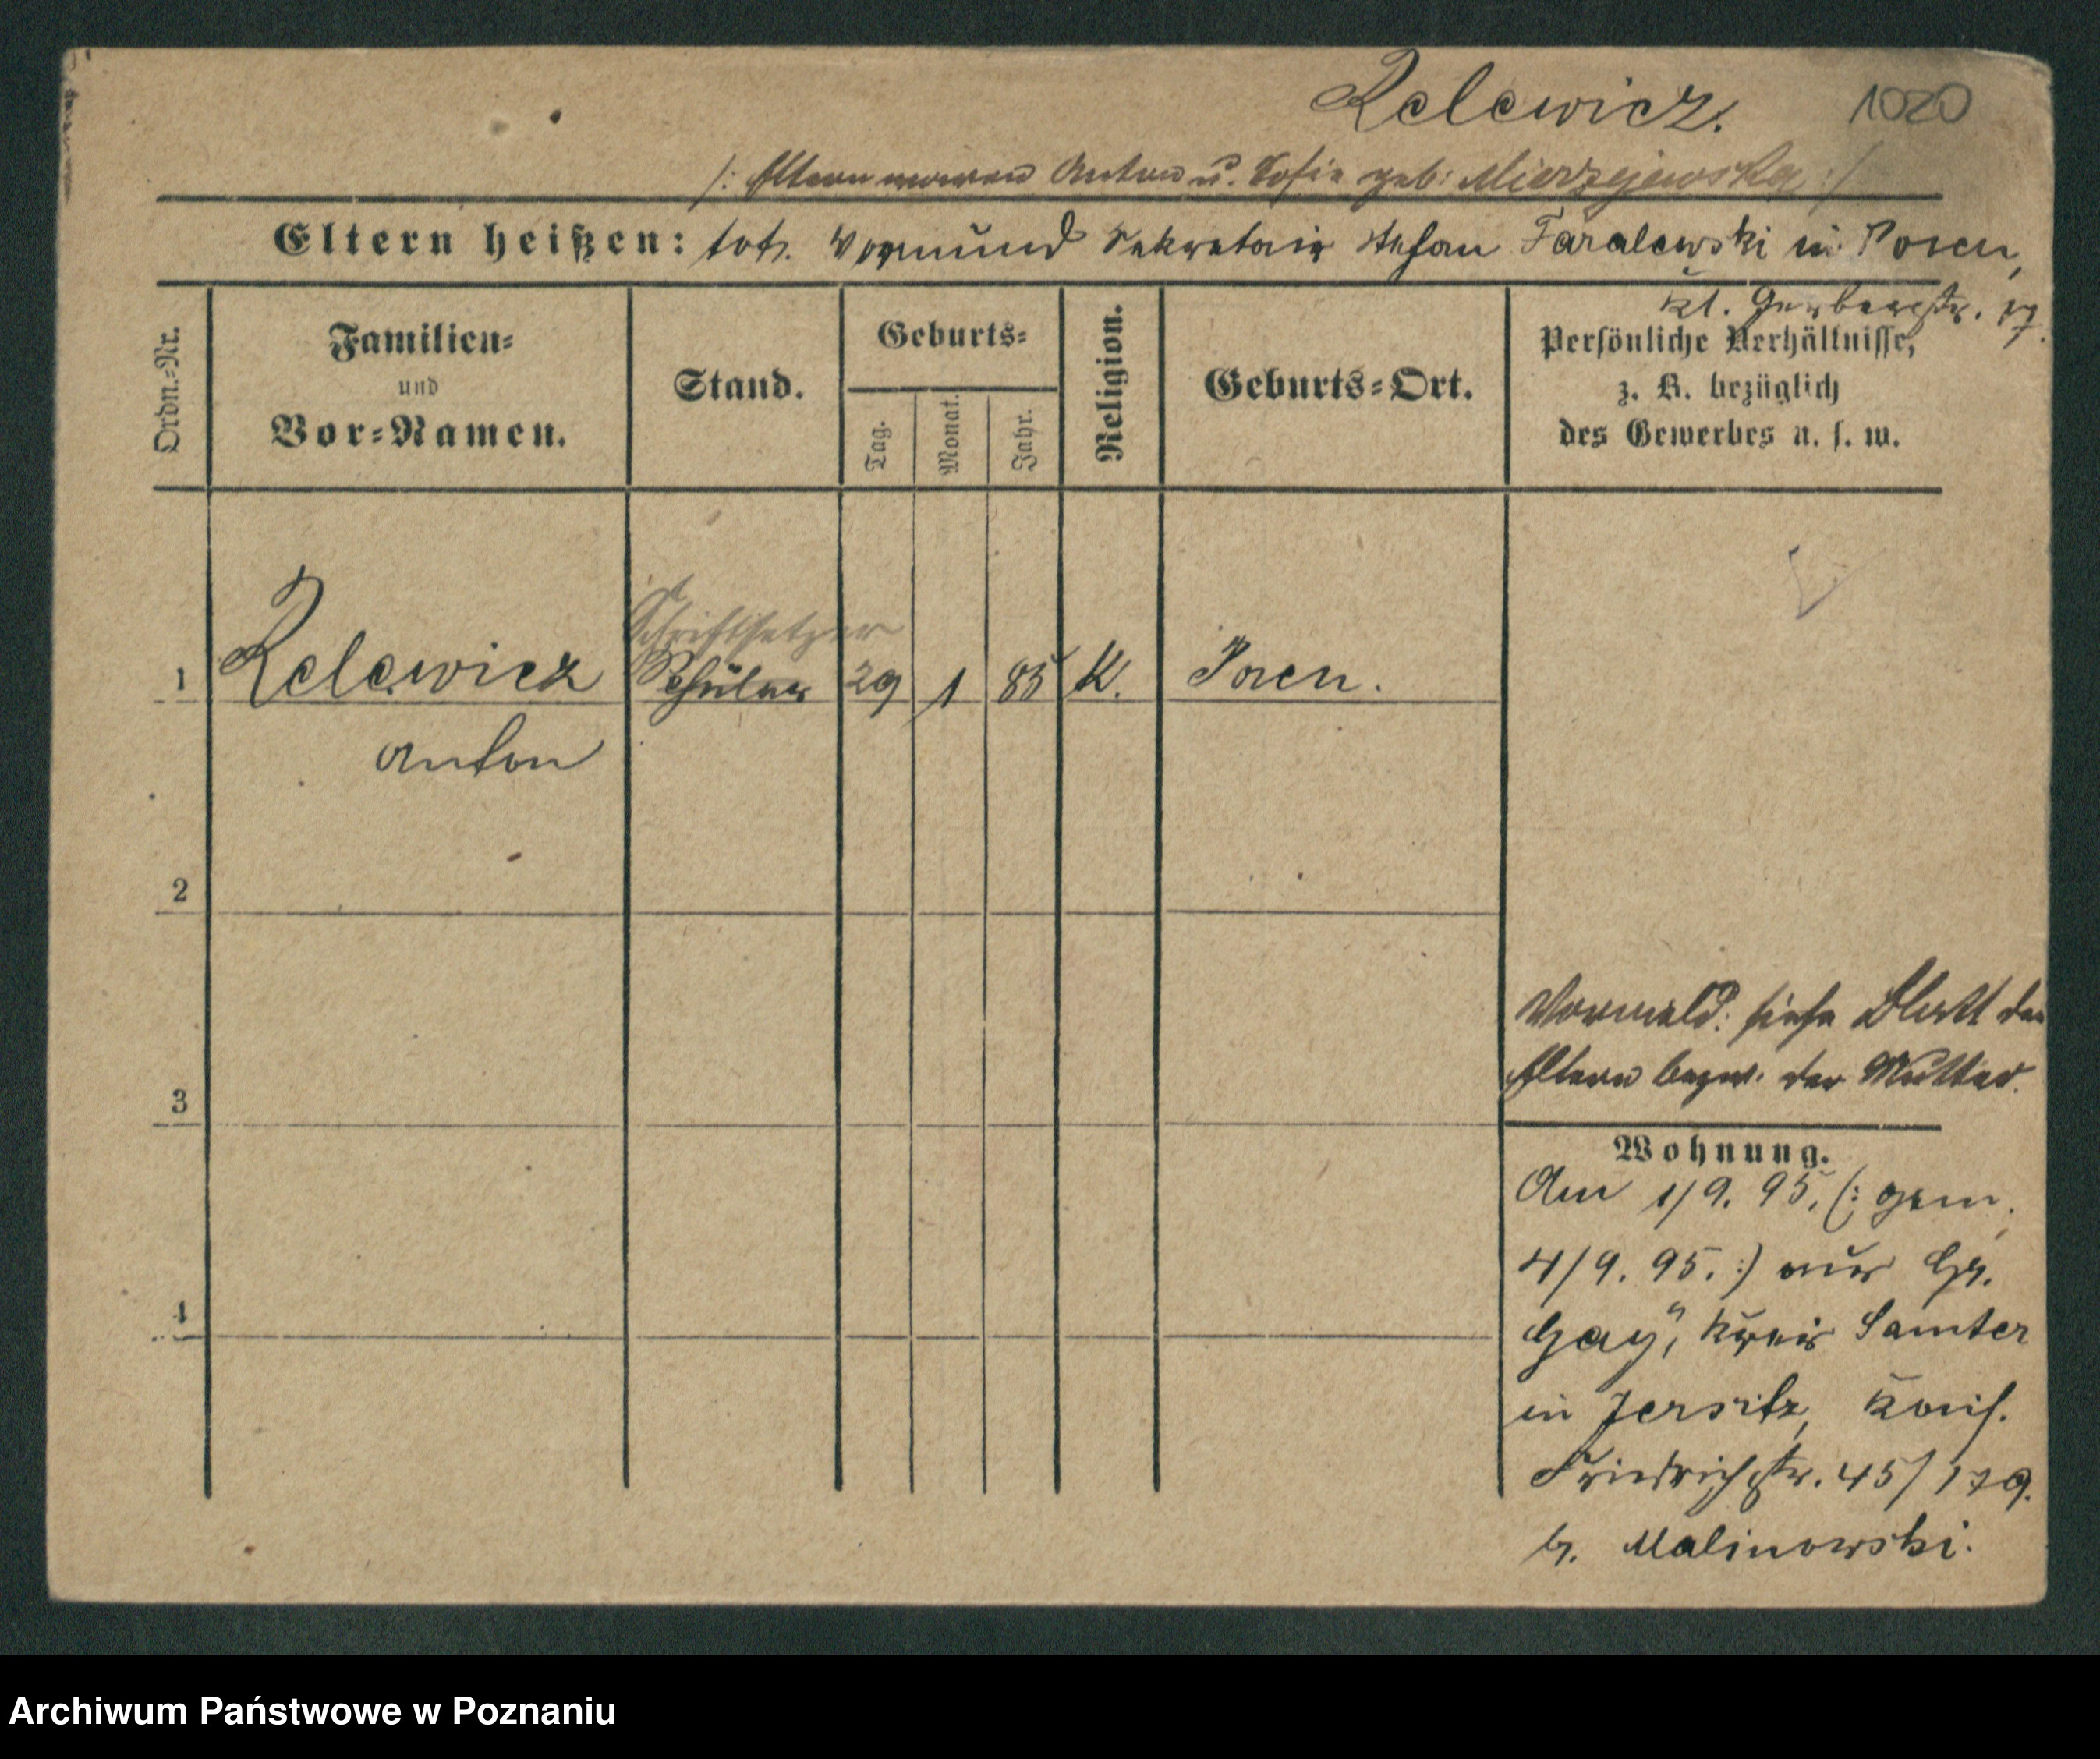 Relewicz. 1020
/: Eltern waren Anton u. Sofie geb: Mierzejewska :/
Eltern heißen: tot. Vormund Sekretair Stefan Faralewski in Posen,
kl. Gerberstr. 17.
Ordn.-Nr.
Familien-
und
Vor-Namen.
Stand.
Geburts-
Tag.
Monat.
Jahr.
Religion.
Geburts-Ort.
Persönliche Verhältnisse,
z. B. bezüglich
des Gewerbes u. s. w.
Schriftsetzer
1 Relewicz Schüler 29 1 85 K. Posen.
Anton
2
3
4
Vormeld: siehe Blatt der
Eltern bezw. der Mutter.
Wohnung.
Am 1/9. 95. (: gem.
4/9. 95. :) aus Gr.
Gay, Kreis Samter
in Jersitz,
Friedrichstr. 45/179.
b. Malinowski.
Archiwum Państwowe w Poznaniu